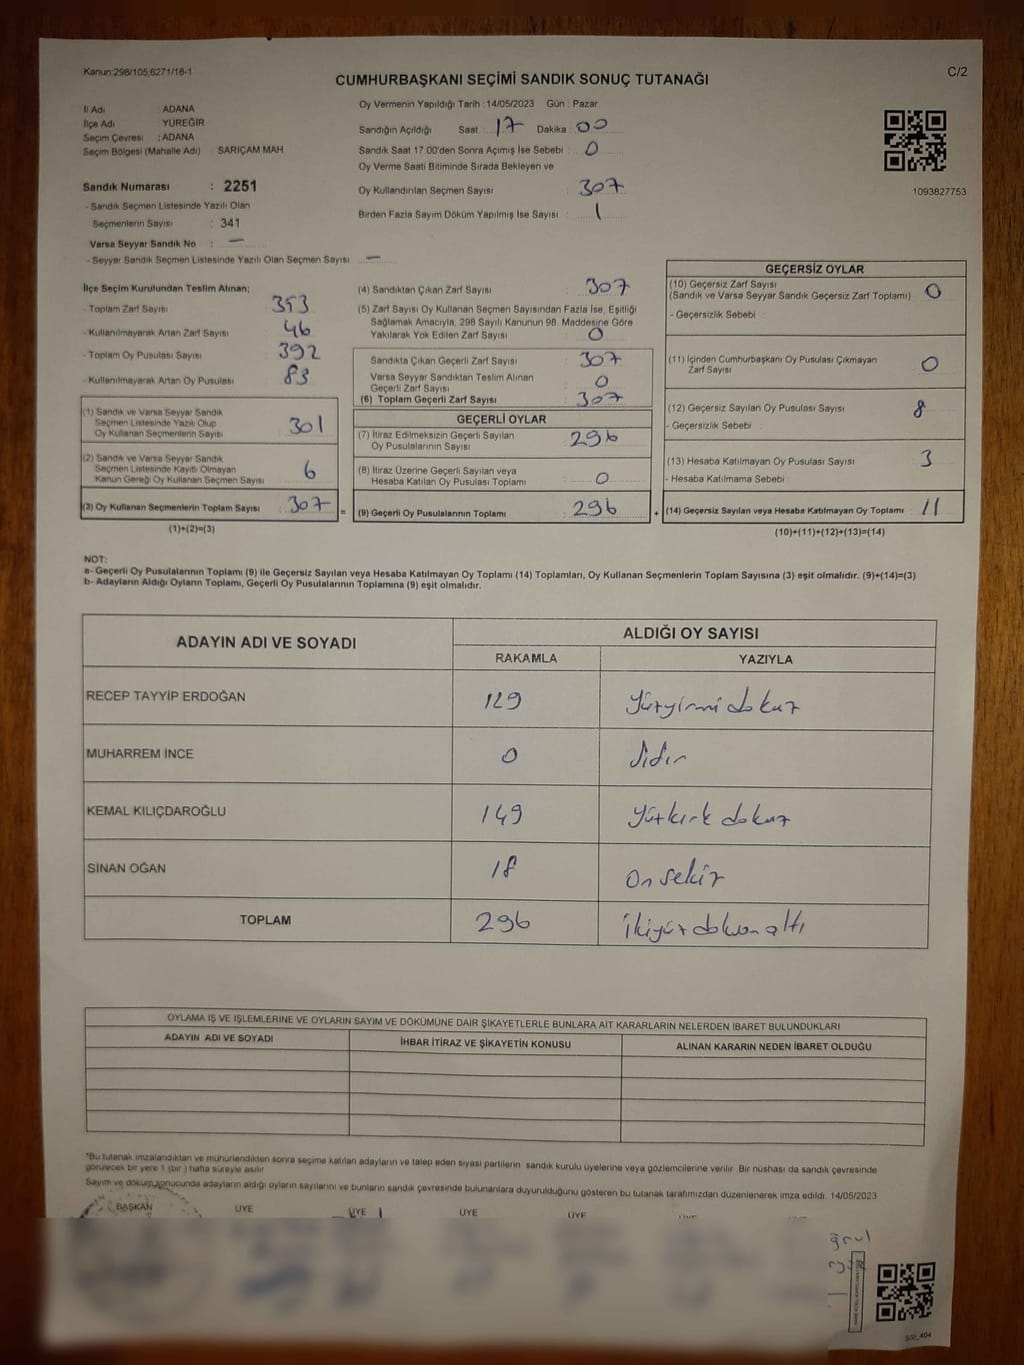 Kanun:298/105,6271/18-1
C/2
CUMHURBAŞKANI SEÇİMİ SANDIK SONUÇ TUTANAĞI
İl Adı ADANA
İlçe Adı YÜREĞİR
Seçim Çevresi : ADANA
Seçim Bölgesi (Mahalle Adı) SARIÇAM MAH
Sandık Numarası : 2251
- Sandık Seçmen Listesinde Yazılı Olan
Seçmenlerin Sayısı : 341
Varsa Seyyar Sandık No : —
- Seyyar Sandık Seçmen Listesinde Yazılı Olan Seçmen Sayısı —
Oy Vermenin Yapıldığı Tarih :14/05/2023 Gün : Pazar
Sandığın Açıldığı Saat 17 Dakika : 00
Sandık Saat 17:00'den Sonra Açımış İse Sebebi : 0
Oy Verme Saati Bitiminde Sırada Bekleyen ve
Oy Kullandırılan Seçmen Sayısı : 307
Birden Fazla Sayım Döküm Yapılmış İse Sayısı : 1
1093827753
İlçe Seçim Kurulundan Teslim Alınan;
- Toplam Zarf Sayısı : 353
- Kullanılmayarak Artan Zarf Sayısı : 46
- Toplam Oy Pusulası Sayısı : 392
- Kullanılmayarak Artan Oy Pusulası : 83
(1) Sandık ve Varsa Seyyar Sandık
Seçmen Listesinde Yazılı Olup
Oy Kullanan Seçmenlerin Sayısı 301
(2) Sandık ve Varsa Seyyar Sandık
Seçmen Listesinde Kayıtlı Olmayan
Kanun Gereği Oy Kullanan Seçmen Sayısı 6
(3) Oy Kullanan Seçmenlerin Toplam Sayısı : 307
(1)+(2)=(3)
=
(4) Sandıktan Çıkan Zarf Sayısı : 307
(5) Zarf Sayısı Oy Kullanan Seçmen Sayısından Fazla İse, Eşitliği
Sağlamak Amacıyla, 298 Sayılı Kanunun 98. Maddesine Göre
Yakılarak Yok Edilen Zarf Sayısı : 0
Sandıkta Çıkan Geçerli Zarf Sayısı : 307
Varsa Seyyar Sandıktan Teslim Alınan
Geçerli Zarf Sayısı : 0
(6) Toplam Geçerli Zarf Sayısı : 307
GEÇERLİ OYLAR
(7) İtiraz Edilmeksizin Geçerli Sayılan
Oy Pusulalarının Sayısı : 296
(8) İtiraz Üzerine Geçerli Sayılan veya
Hesaba Katılan Oy Pusulası Toplamı : 0
(9) Geçerli Oy Pusulalarının Toplamı : 296
+
GEÇERSİZ OYLAR
(10) Geçersiz Zarf Sayısı
(Sandık ve Varsa Seyyar Sandık Geçersiz Zarf Toplamı) : 0
- Geçersizlik Sebebi :
(11) İçinden Cumhurbaşkanı Oy Pusulası Çıkmayan
Zarf Sayısı : 0
(12) Geçersiz Sayılan Oy Pusulası Sayısı : 8
- Geçersizlik Sebebi :
(13) Hesaba Katılmayan Oy Pusulası Sayısı : 3
- Hesaba Katılmama Sebebi :
(14) Geçersiz Sayılan veya Hesaba Katılmayan Oy Toplamı : 11
(10)+(11)+(12)+(13)=(14)
NOT:
a- Geçerli Oy Pusulalarının Toplamı (9) ile Geçersiz Sayılan veya Hesaba Katılmayan Oy Toplamı (14) Toplamları, Oy Kullanan Seçmenlerin Toplam Sayısına (3) eşit olmalıdır. (9)+(14)=(3)
b- Adayların Aldığı Oyların Toplamı, Geçerli Oy Pusulalarının Toplamına (9) eşit olmalıdır.
ADAYIN ADI VE SOYADI ALDIĞI OY SAYISI
RAKAMLA YAZIYLA
RECEP TAYYİP ERDOĞAN 129 Yüzyirmi dokuz
MUHARREM İNCE 0 Sıfır
KEMAL KILIÇDAROĞLU 149 yüzkırk dokuz
SİNAN OĞAN 18 on sekiz
TOPLAM 296 ikiyüz doksan altı
OYLAMA İŞ VE İŞLEMLERİNE VE OYLARIN SAYIM VE DÖKÜMÜNE DAİR ŞİKAYETLERLE BUNLARA AİT KARARLARIN NELERDEN İBARET BULUNDUKLARI
ADAYIN ADI VE SOYADI İHBAR İTİRAZ VE ŞİKAYETİN KONUSU ALINAN KARARIN NEDEN İBARET OLDUĞU
*Bu tutanak imzalandıktan ve mühürlendikten sonra seçime katılan adayların ve talep eden siyasi partilerin sandık kurulu üyelerine veya gözlemcilerine verilir. Bir nüshası da sandık çevresinde
görülecek bir yere 1 (bir ) hafta süreyle asılır
Sayım ve döküm sonucunda adayların aldığı oyların sayılarını ve bunların sandık çevresinde bulunanlara duyurulduğunu gösteren bu tutanak tarafımızdan düzenlenerek imza edildi. 14/05/2023
BAŞKAN ÜYE ÜYE ÜYE ÜYE